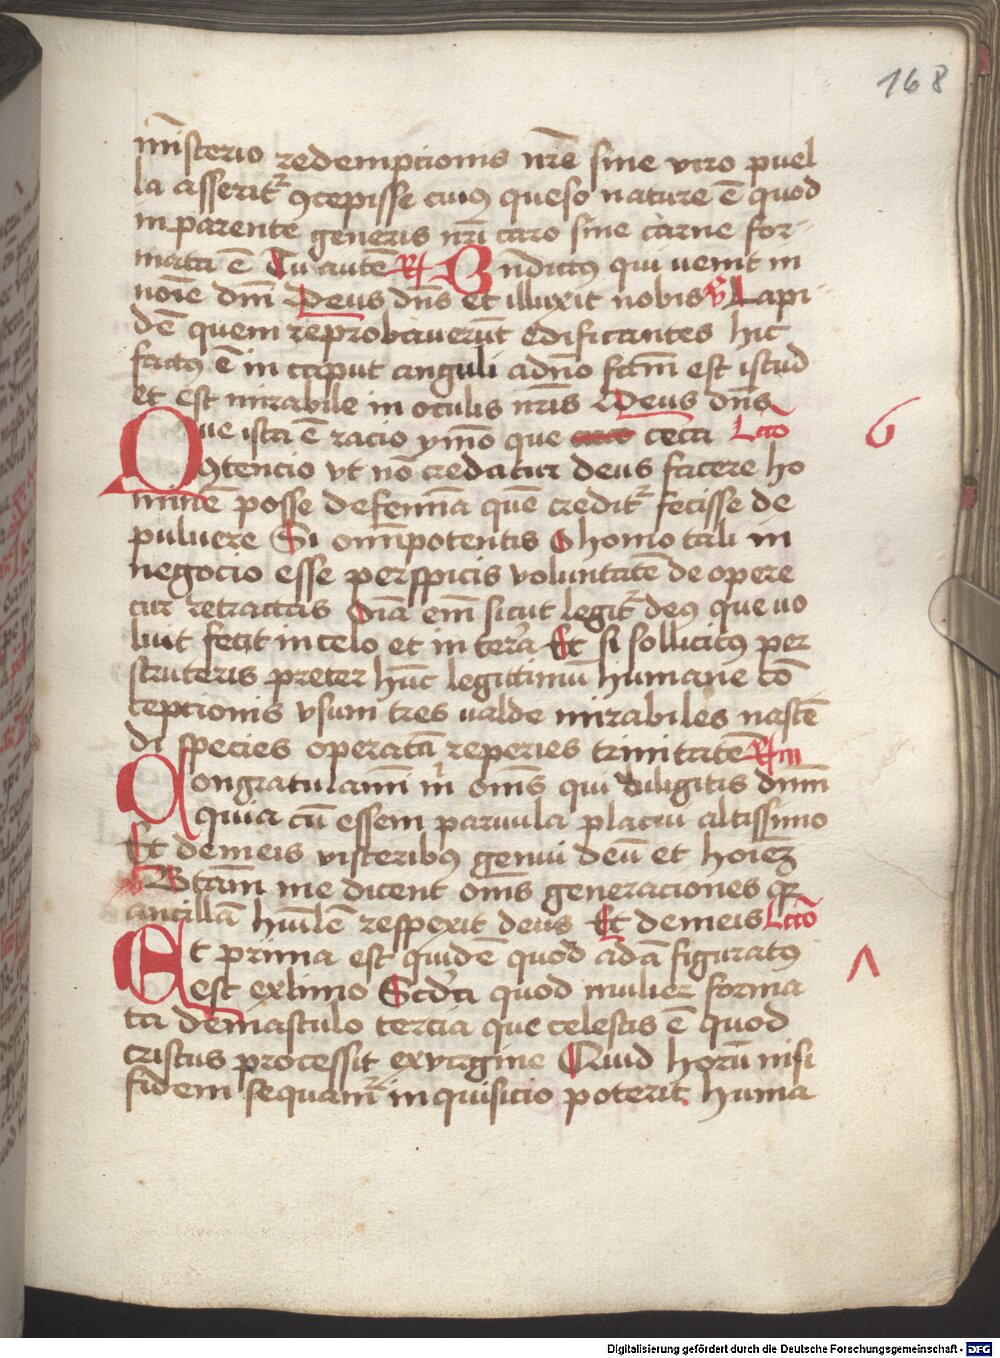 168
misterio redempcionis nr̄e sine viro puel
la asserit᷑ ꝯcepisse cuiꝰ queso nature ē quod
in parente generis nr̄i caro sine carne for-
mata ē Tu autē R Bn̄dictus qui uenit in
noīe dnī Deus dn̄s et illuxit nobis V Lapi-
dē quem reprobauerūt edificantes hic
factꝰ ē in caput anguli a dn̄o factm̄ est istud
et est mirabile in oculis nr̄is Deus dn̄s
Que ista ē racio ymo que ceca Lcio 6
ꝯtencio vt nō credatur deus facere ho
minē posse de femīa quē credit᷑ fecisse de
puluere Si om̄ipotentis o homo tali in
negocio esse perspicis voluntatē de opere
cur retractas Oīa em̄ sicut legit᷑ deꝰ que uo
luit fecit in celo et in terra Et si sollicitꝰ per
scruteris preter hūc legittimū humane cō
cepcionis vsum tres ualde mirabiles nascē
di species operatā reperies trinitatē R m
Congratulamī m̄ om̄s qui diligitis dnm̄
quia cū essem paruula placui altissimo
Et de meis visceribꝰ genui deū et hoīeꝫ
V Btām me dicent om̄s generaciones qꝛ
ancillā humlē respexit deus Et de meis Lccō
Et prima est quidē quod adā figuratꝰ Λ
est ex limo Scd̄a quod mulier forma
ta de masculo tercia que celestis ē quod
cristus processit ex virgine Quid horū nisi
fidem sequam᷑ inquisicio poterit huma
Digitalisierung gefördert durch die Deutsche Forschungsgemeinschaft - DFG